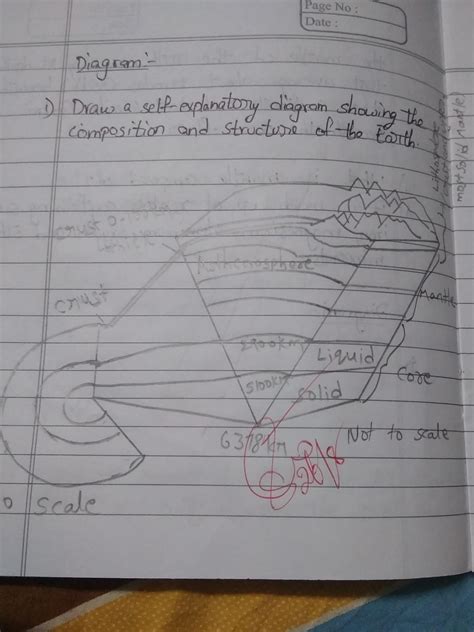 Page No :
Date :
Diagram:-
1) Draw a self-explanatory diagram showing the
composition and structure of the Earth.
Crust 0-100km
thick
Asthenosphere
Crust
Mantle
2900km
Liquid
5100km
Solid
Core
6378km
Not to scale
to scale